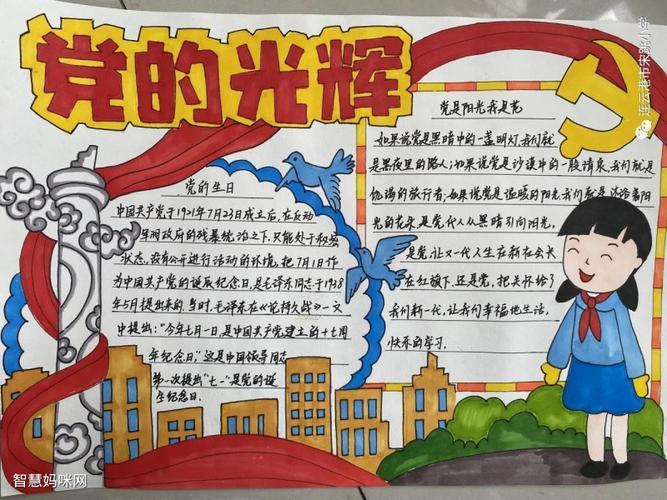 党的光辉
党的生日
中国共产党于1921年7月23日成立后,在反动
军阀政府的残暴统治之下,只能处于秘密
状态,没有公开进行活动的环境。把7月1日作
为中国共产党的诞辰纪念日,是毛泽东同志于1938
年5月提出来的。当时,毛泽东在《论持久战》一文
中提出:"今年七月一日,是中国共产党建立的十七周
年纪念日。"这是中国领导同志
第一次提出"七一"是党的诞
生纪念日。
党是阳光我是花
如果说党是黑暗中的一盏明灯,我们就
是黑夜里的路人;如果说党是沙漠中的一股清泉,我们就是
饥渴的旅行者;如果说党是温暖的阳光,我们就是沐浴着阳
光的花朵,是党代人从黑暗引向阳光,
是党,让一代人生在新在长
在红旗下,还是党,把关怀给了
我们新一代,让我们幸福地生活,
快乐的学习。
连云港市宋跳小学
智慧妈咪网